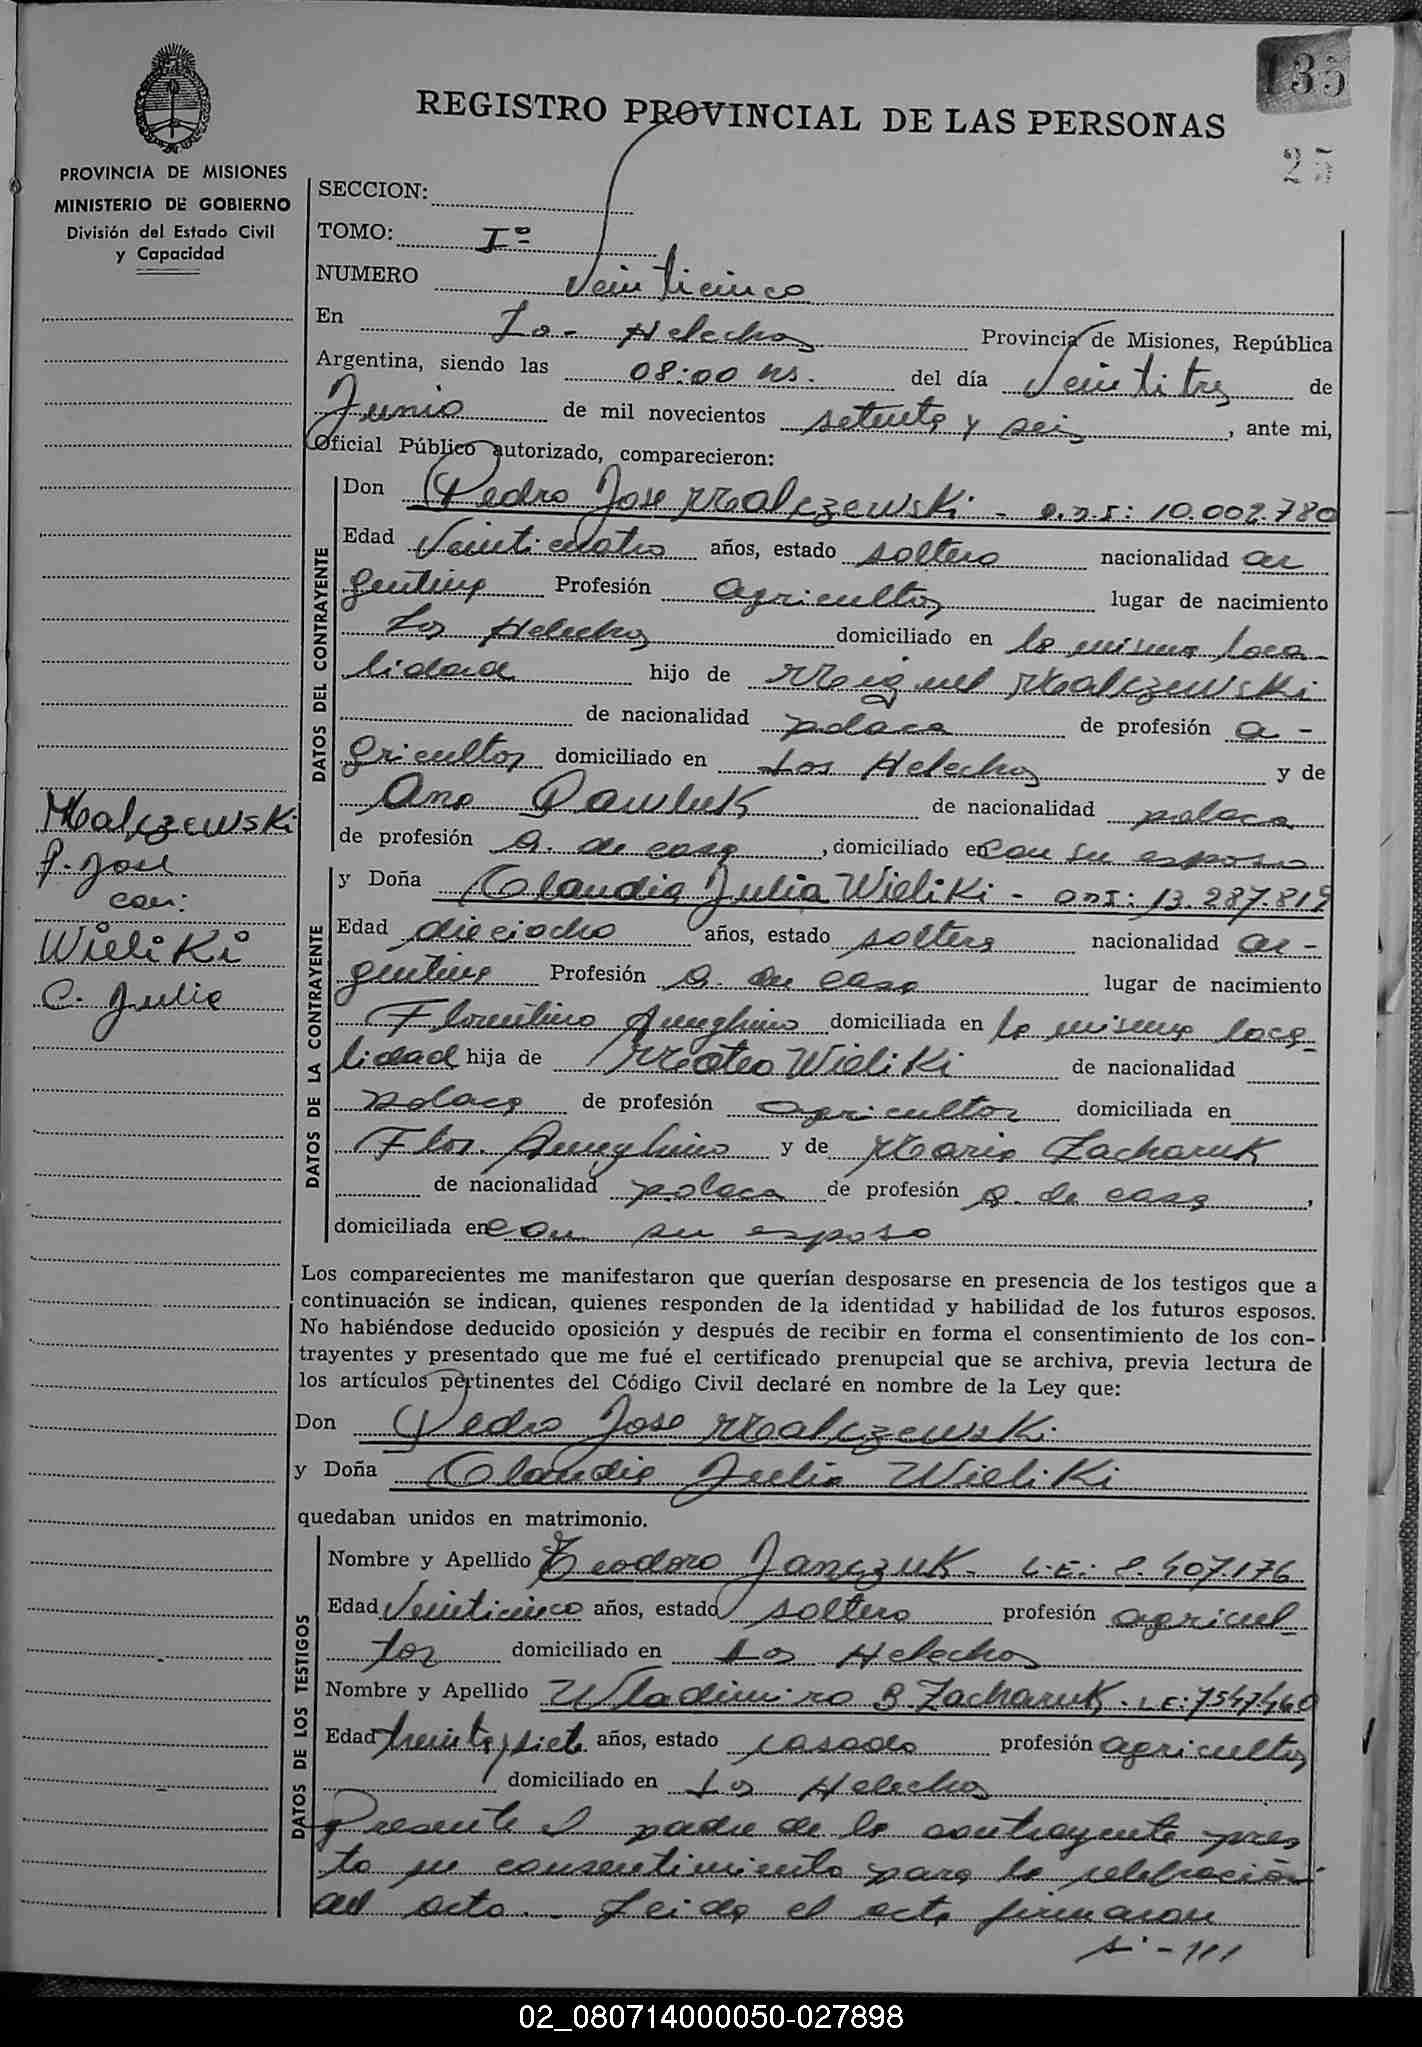 135
REGISTRO PROVINCIAL DE LAS PERSONAS
25
PROVINCIA DE MISIONES
MINISTERIO DE GOBIERNO
División del Estado Civil
y Capacidad
SECCION:
TOMO: Iº
NUMERO Veinticinco
En Los Helechos Provincia de Misiones, República
Argentina, siendo las 08:00 hs. del día Veintitres de
Junio de mil novecientos setenta y seis, ante mi,
Oficial Público autorizado, comparecieron:
DATOS DEL CONTRAYENTE
Don Pedro Jose Malczewski - D.N.I: 10.002.780
Edad Veinticuatro años, estado soltero nacionalidad ar
gentina Profesión agricultor lugar de nacimiento
Los Helechos domiciliado en la misma loca-
lidad hijo de Miguel Malczewski
de nacionalidad polaca de profesión a-
gricultor domiciliado en Los Helechos y de
Ana Pawluk de nacionalidad polaca
de profesión a. de casa, domiciliado en con su esposo
Malczewski
P. Jose
con:
Wieliki
C. Julia
DATOS DE LA CONTRAYENTE
y Doña Claudia Julia Wieliki - DNI: 13.287.819
Edad dieciocho años, estado soltera nacionalidad ar-
gentina Profesión a. de casa lugar de nacimiento
Florentino Ameghino domiciliada en la misma loca-
lidad hija de Mateo Wieliki de nacionalidad
polaca de profesión agricultor domiciliada en
Flor. Ameghino y de Maria Zacharuk
de nacionalidad polaca de profesión a. de casa,
domiciliada en con su esposo
Los comparecientes me manifestaron que querían desposarse en presencia de los testigos que a
continuación se indican, quienes responden de la identidad y habilidad de los futuros esposos.
No habiéndose deducido oposición y después de recibir en forma el consentimiento de los con-
trayentes y presentado que me fué el certificado prenupcial que se archiva, previa lectura de
los artículos pertinentes del Código Civil declaré en nombre de la Ley que:
Don Pedro Jose Malczewski
y Doña Claudia Julia Wieliki
quedaban unidos en matrimonio.
DATOS DE LOS TESTIGOS
Nombre y Apellido Teodoro Janczuk - L.E.: 8.407.176
Edad Veinticinco años, estado soltero profesión agricul-
tor domiciliado en Los Helechos
Nombre y Apellido Wladimiro B. Zacharuk. L.E: 7547460
Edad treinta y siete años, estado casado profesión agricultor
domiciliado en Los Helechos
Presente el padre de la contrayente pres
ta su consentimiento para la celebración
del acto. - Leida el acta firmaron
si -///
02_080714000050-027898